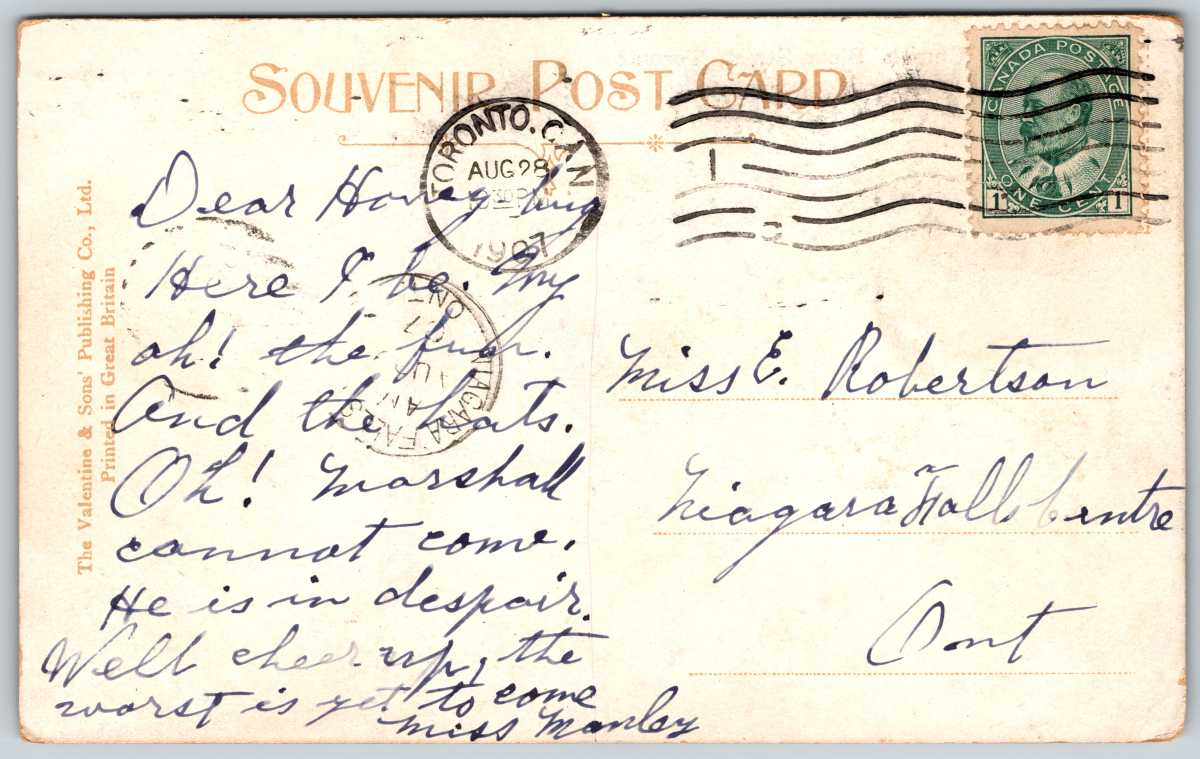 SOUVENIR POST CARD
TORONTO. CAN
AUG 28
1907
1
2
CANADA POSTAGE
ONE CENT
1 1
The Valentine & Sons' Publishing Co., Ltd.
Printed in Great Britain
Dear Honey bug
Here I be. My
oh! the fush.
And the hats.
Oh! Marshall
cannot come.
He is in despair.
Well cheer up, the
worst is yet to come
Miss Manley
NIAGARA FALLS
ONT
AM
Miss E. Robertson
Niagara Falls Centre
Ont